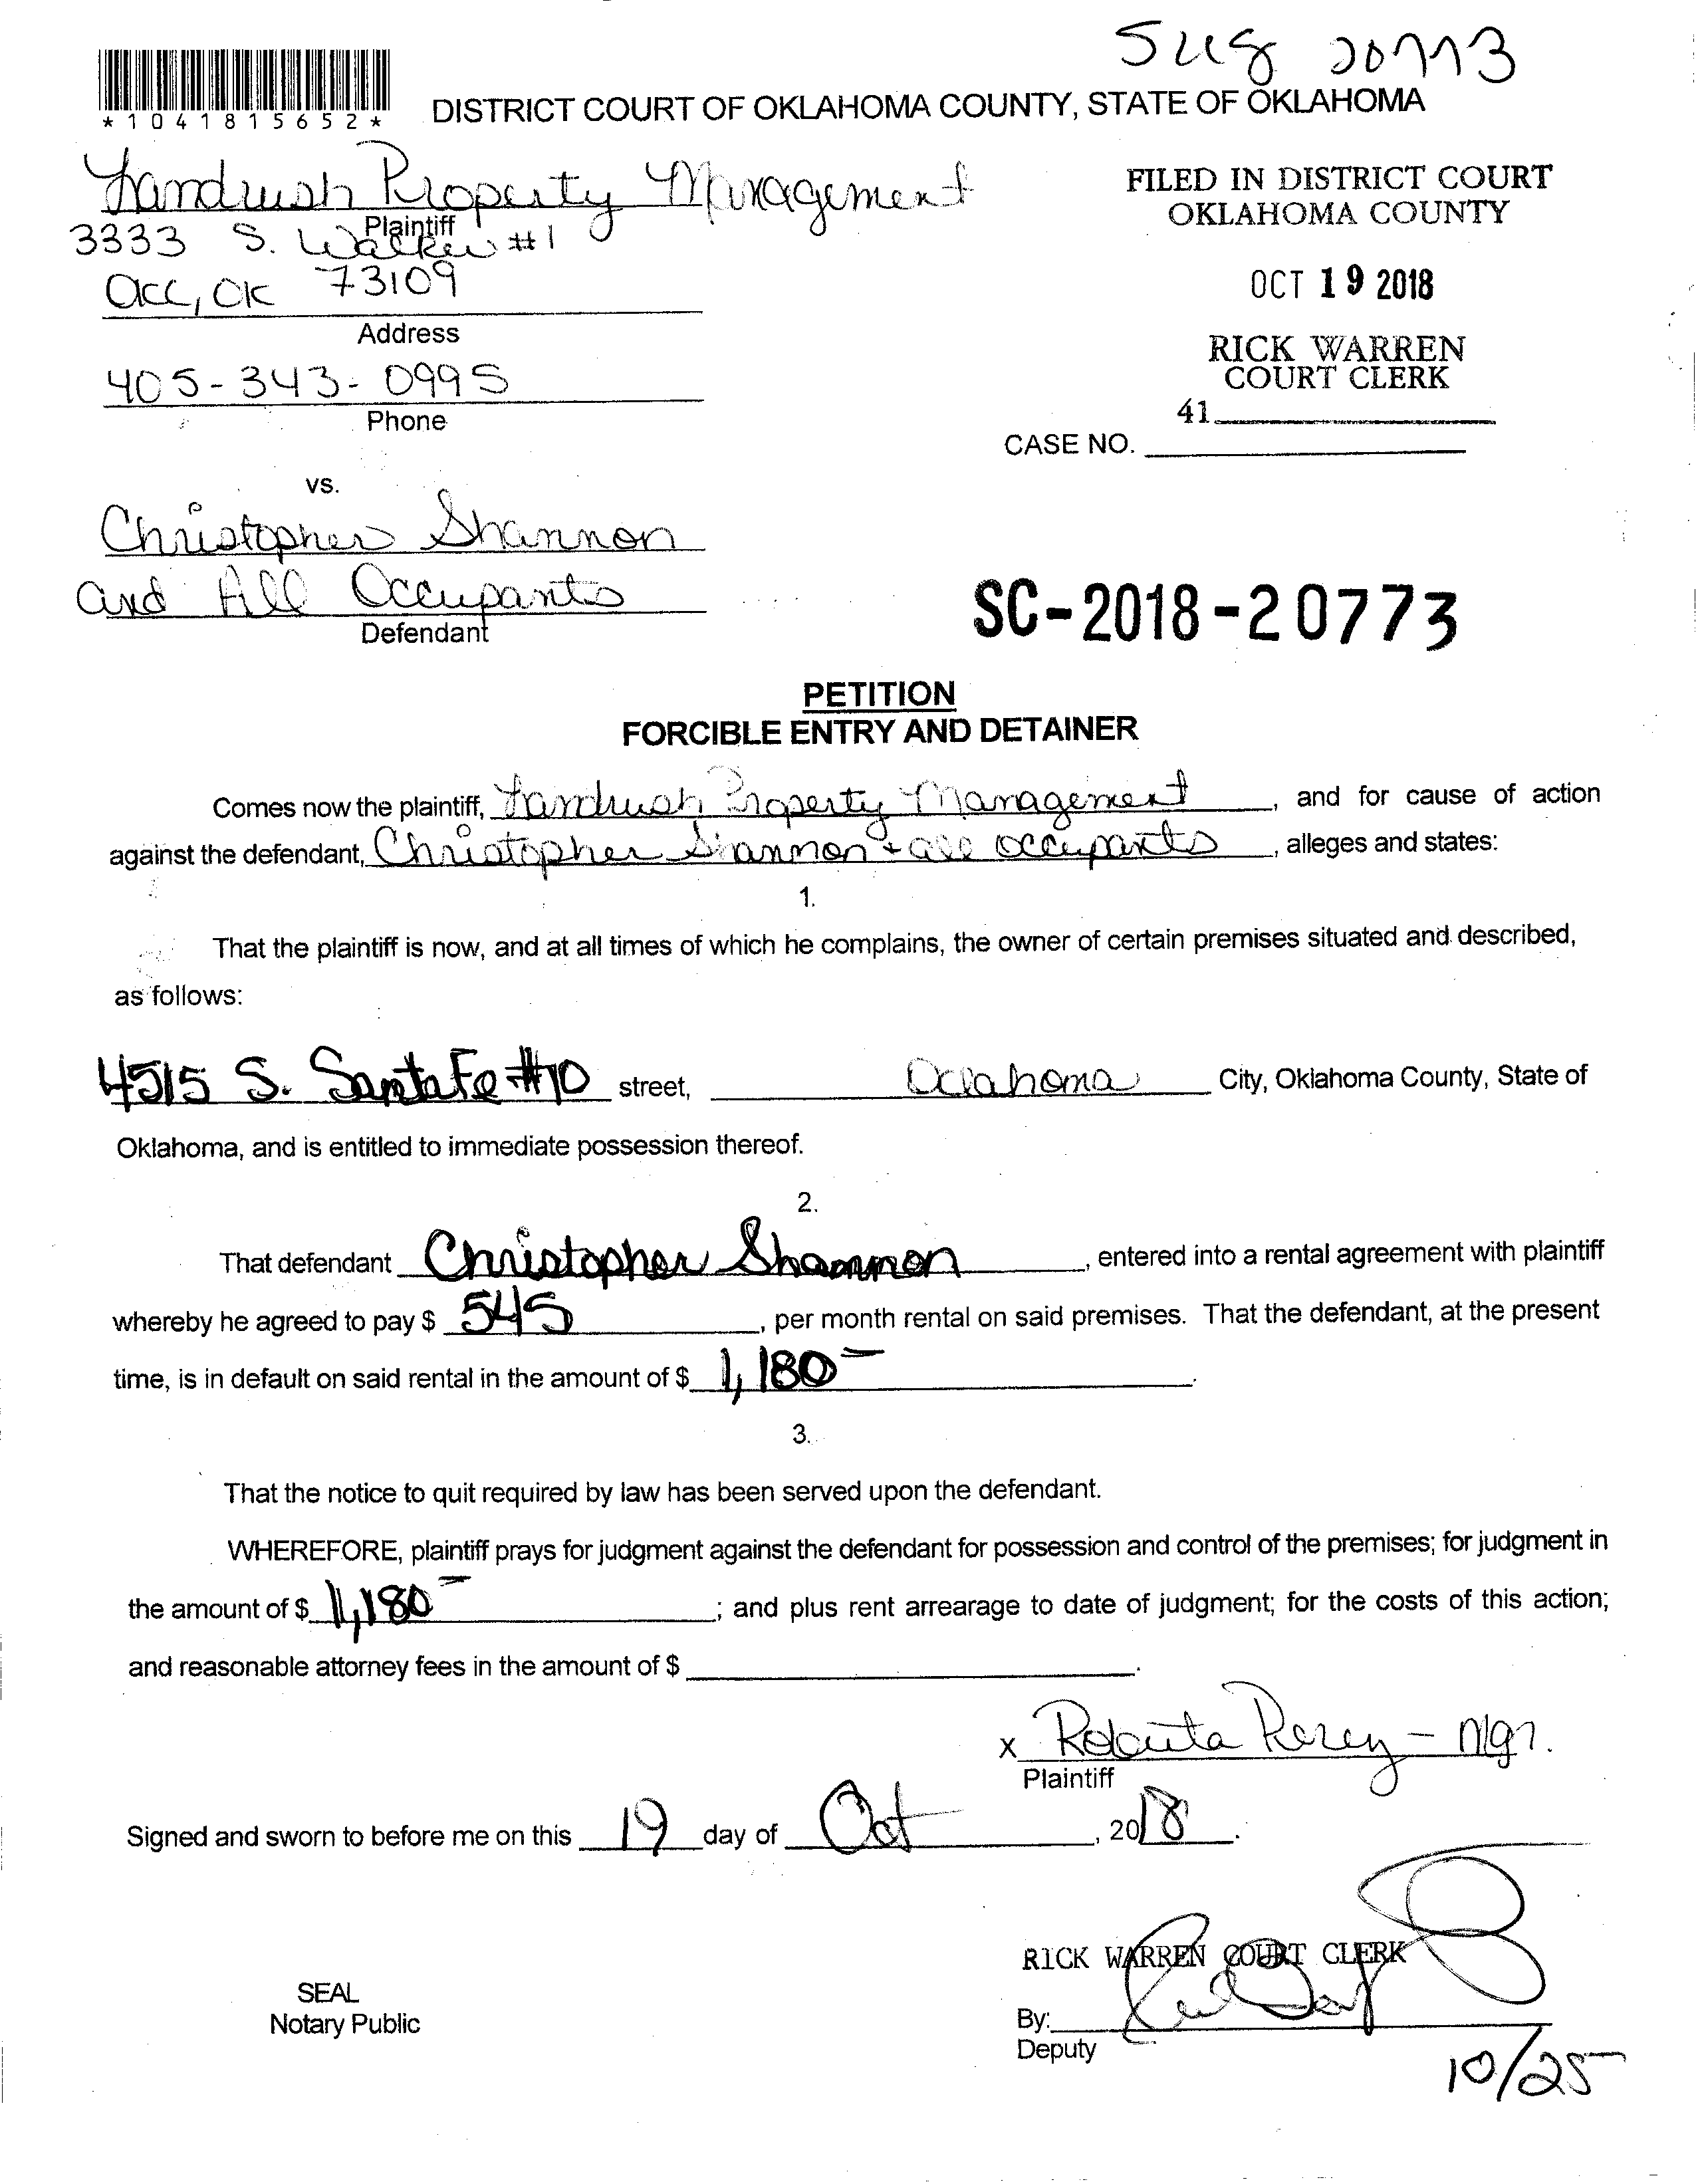 *1041815652*
DISTRICT COURT OF OKLAHOMA COUNTY, STATE OF OKLAHOMA
Landrush Property Management
Plaintiff
3333 S. Walker #1
OCC, OK 73109
Address
405-343-0995
Phone
FILED IN DISTRICT COURT
OKLAHOMA COUNTY
OCT 19 2018
RICK WARREN
COURT CLERK
41
CASE NO.
vs.
Christopher Shannon
and All Occupants
Defendant
SC-2018-20773
PETITION
FORCIBLE ENTRY AND DETAINER
Comes now the plaintiff, Landrush Property Management, and for cause of action
against the defendant, Christopher Shannon + all occupants, alleges and states:
1.
That the plaintiff is now, and at all times of which he complains, the owner of certain premises situated and described,
as follows:
4515 S. Santa Fe #10 street, Oclahoma City, Oklahoma County, State of
Oklahoma, and is entitled to immediate possession thereof.
2.
That defendant Christopher Shannon, entered into a rental agreement with plaintiff
whereby he agreed to pay $ 545, per month rental on said premises. That the defendant, at the present
time, is in default on said rental in the amount of $ 1,180-.
3.
That the notice to quit required by law has been served upon the defendant.
WHEREFORE, plaintiff prays for judgment against the defendant for possession and control of the premises; for judgment in
the amount of $ 1,180-; and plus rent arrearage to date of judgment; for the costs of this action;
and reasonable attorney fees in the amount of $ .
x Roberta Perez - Mgr.
Plaintiff
Signed and sworn to before me on this 19 day of Oct, 2018.
RICK WARREN COURT CLERK
SEAL
Notary Public
By:
Deputy
10/25